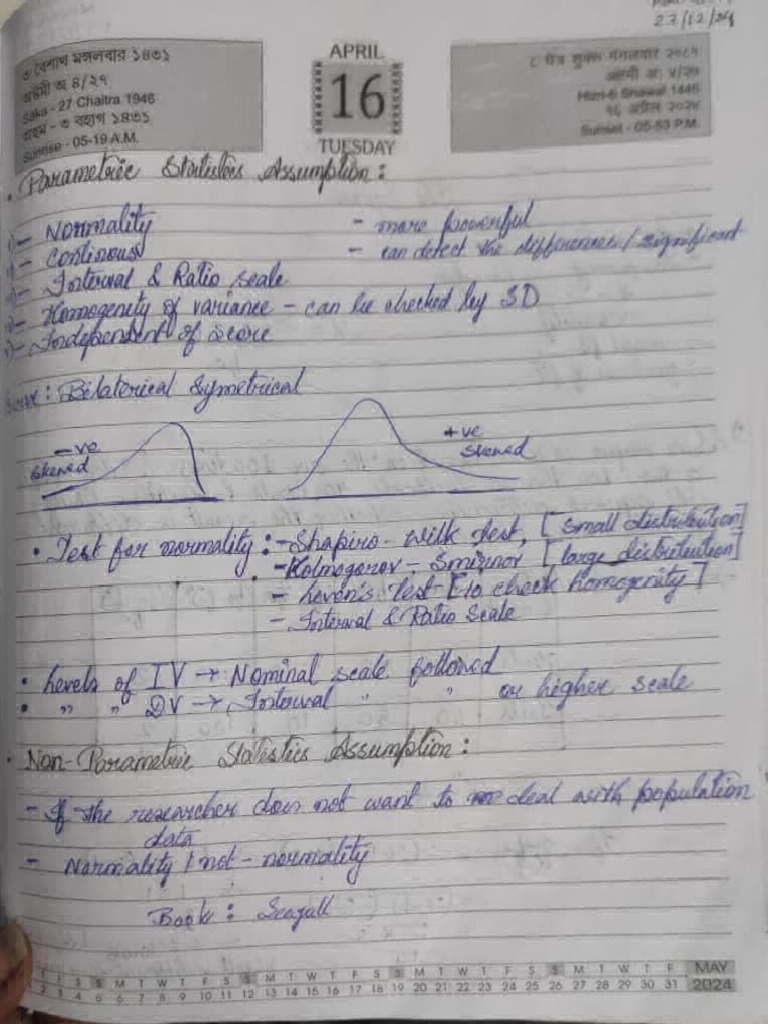 23/12/24
৩ বৈশাখ মঙ্গলবার ১৪৩১
অষ্টমী অ ৪/২৭
Saka - 27 Chaitra 1946
অহম - ৩ বহাগ ১৪৩১
Sunrise - 05-19 A.M.
APRIL
16
TUESDAY
Hizri-6 Shawal 1445
Sunset - 05-53 P.M.
• Parametric Statistics Assumption :
i) - Normality - more powerful
- Continous - can detect the differences / significant
- Interval & Ratio scale
- Homogenity of variance - can be checked by SD
- Independent of score
: Bilaterical Symetrical
-ve skewed
+ve skewed
• Test for normality : - Shapiro - Wilk test, [small distribution]
- Kolmogorov - Smirnov [large distribution]
- Leven's Test - [to check homogenity]
- Interval & Ratio Scale
• Levels of IV → Nominal scale followed
• " " DV → Interval " " or higher scale
• Non-Parametric Statistics Assumption :
- If the researcher does not want to deal with population
data
- Normality / not - normality
Book : Seagull
F S S M T W T F S S M T W T F S S M T W T F S S M T W T F MAY
2 3 4 5 6 7 8 9 10 11 12 13 14 15 16 17 18 19 20 21 22 23 24 25 26 27 28 29 30 31 2024